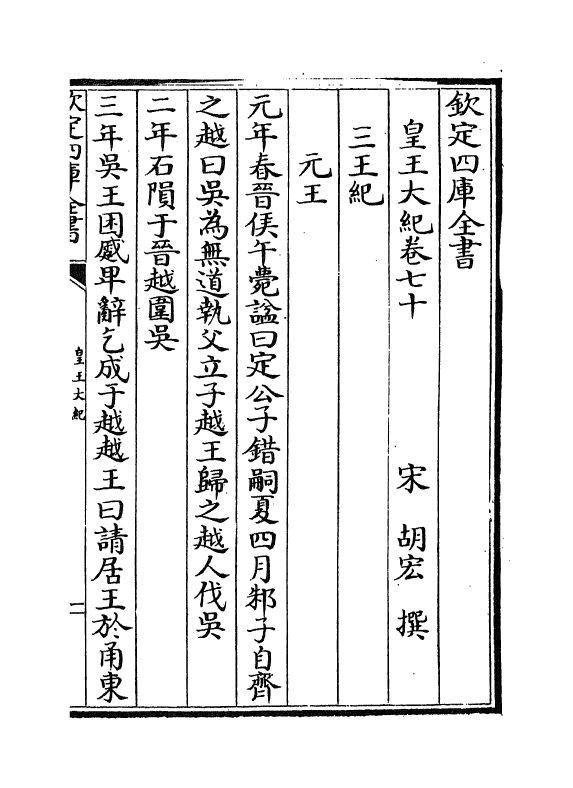 欽定四庫全書
皇王大紀卷七十
宋 胡宏 撰
三王紀
元王
元年春晉侯午薨諡曰定公子錯嗣夏四月邾子自齊
之越曰吳為無道執父立子越王歸之越人伐吳
二年石隕于晉越圍吳
三年吳王困蹙卑辭乞成于越越王曰請居王於甬東
欽定四庫全書
皇王大紀